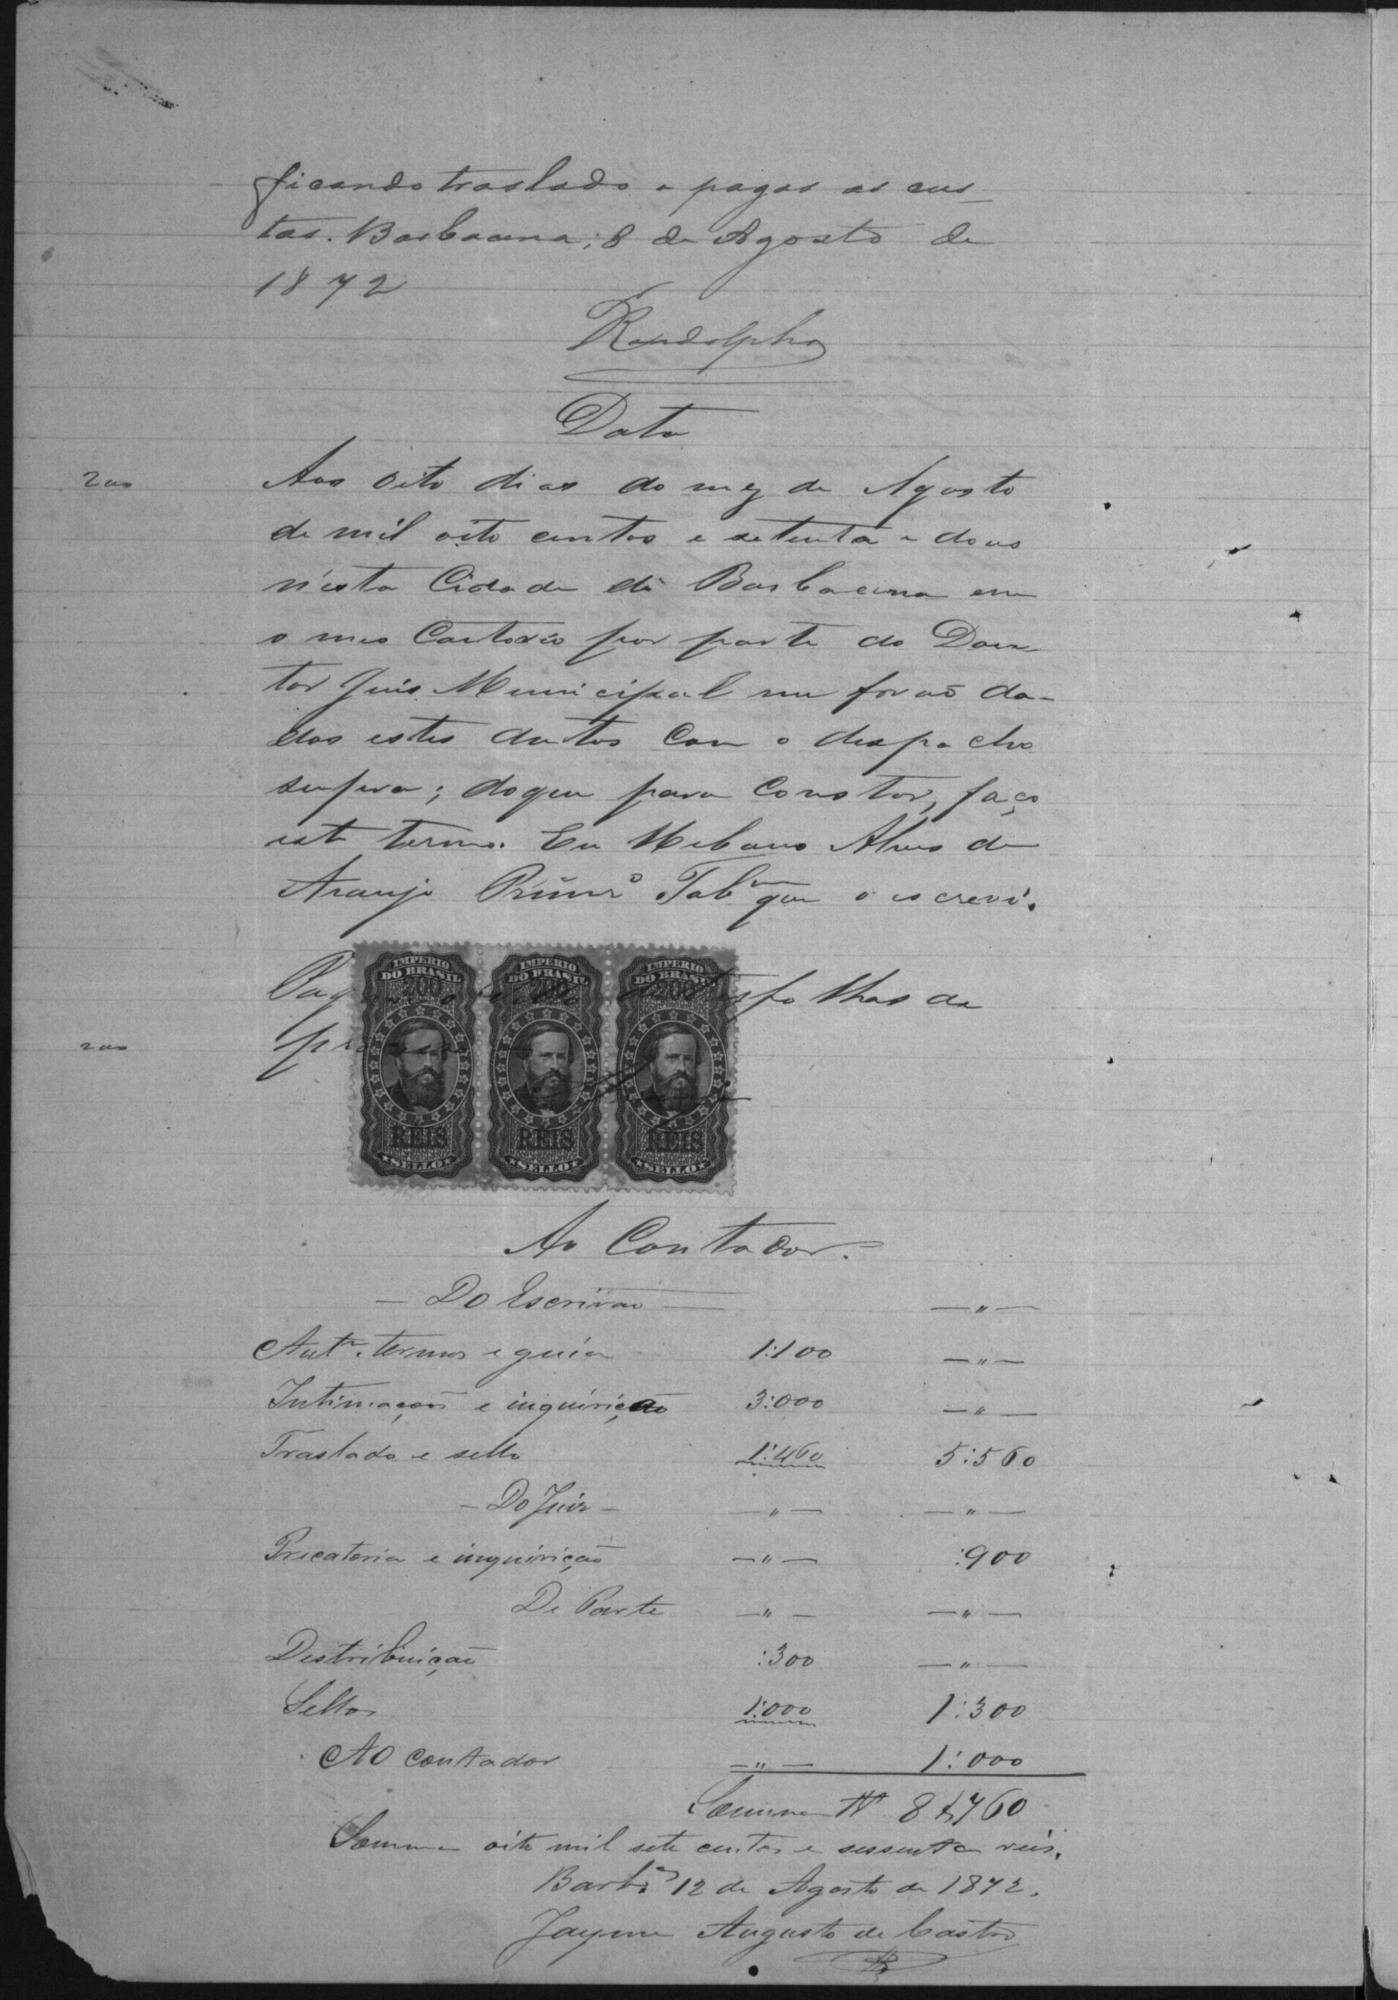 ficando traslado e pagas as cus-
tas. Barbacena, 8 de Agosto de
1872
Randolpho
Data
200 Aos oito dias do mez de Agosto
de mil oito centos e setenta e dous
n'esta Cidade de Barbacena em
o meo Cartorio por parte do Dou-
tor Juis Municipal me forão da-
dos estes autos com o despacho
supra; do que para constar, faço
este termo. Eu Urbano Alves de
Araujo Primrº Tabam que o escrevi.
folhas de
200
IMPERIO DO BRASIL 200 REIS SELLO
IMPERIO DO BRASIL 200 REIS SELLO
IMPERIO DO BRASIL 200 REIS SELLO
Ao Contador.
— Do Escrivão — — " —
Autm. termos e guia 1:100 — " —
Intimações e inquirição 3:000 — " —
Traslado e sello 1:460 5:560
— Do Juiz — — " — — " —
Precatoria e inquirição — " — :900
De Parte — " — — " —
Distribuição :300 — " —
Sellos 1:000 1:300
Ao Contador — " — 1:000
Somma 8$760
Somma oito mil sete centos e sessenta reis.
Barbª 12 de Agosto de 1872.
Jayme Augusto de Castro